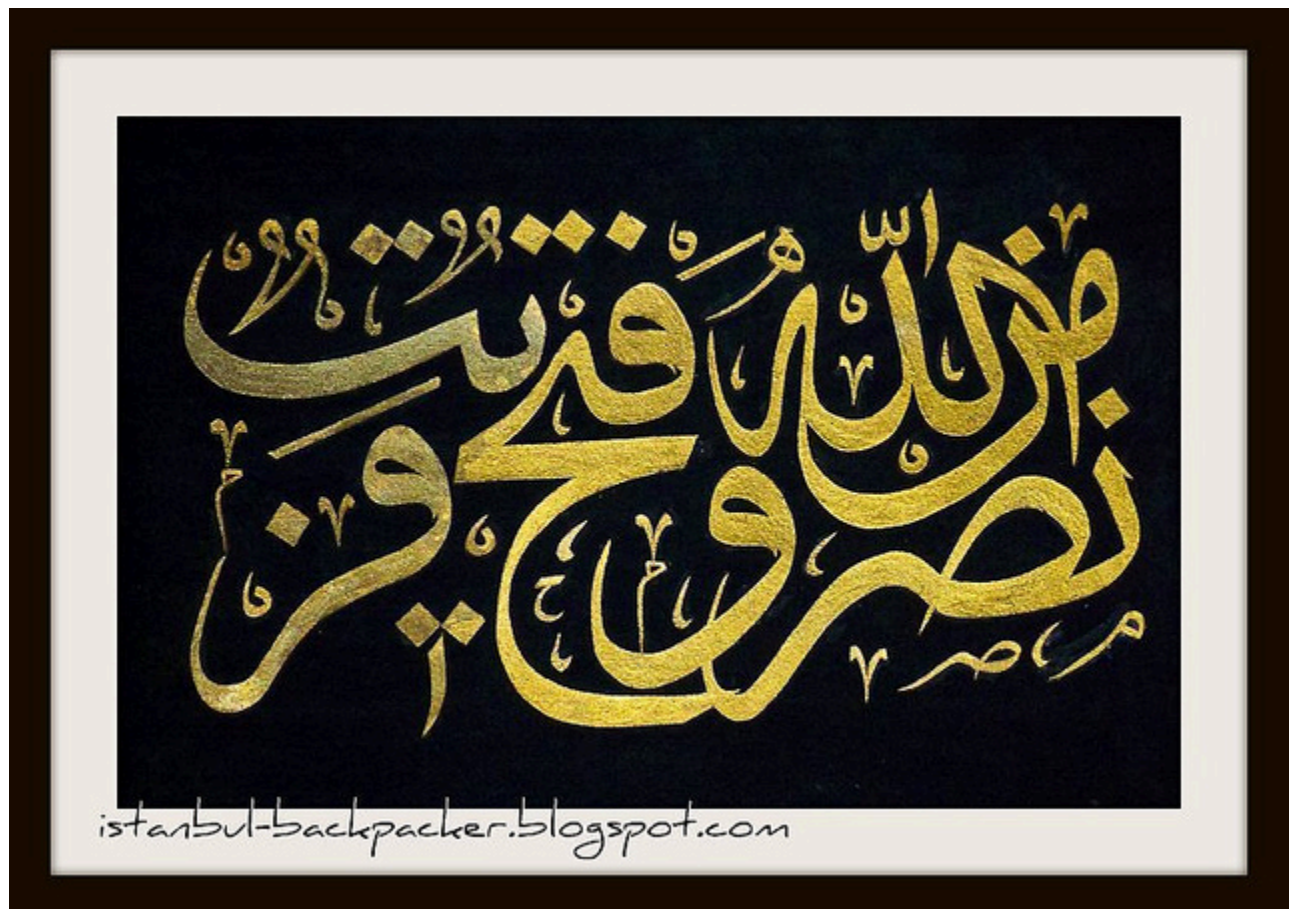 نَصْرٌ مِنَ اللّٰهِ وَفَتْحٌ قَرِيبٌ
istanbul-backpacker.blogspot.com